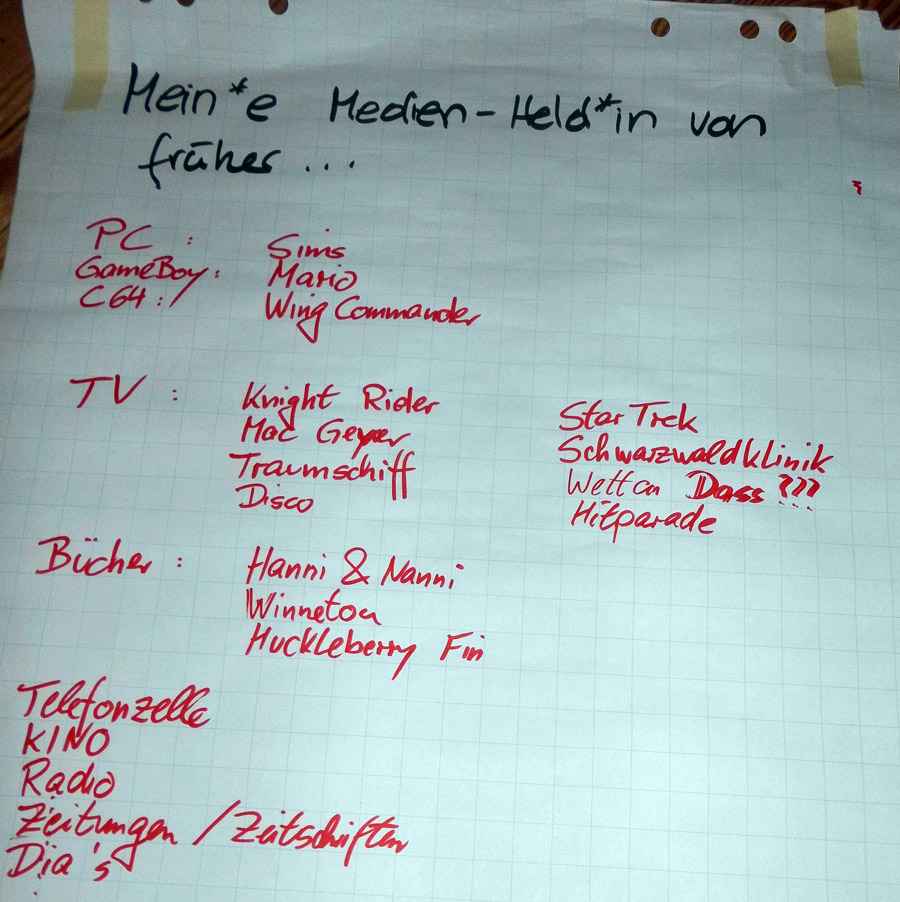 Mein*e Medien-Held*in von
früher ...
PC : Sims
GameBoy: Mario
C64:/ Wing Commander
TV : Knight Rider
Mac Geyver
Traumschiff
Disco
Star Trek
Schwarzwaldklinik
Wetten Dass ???...
Hitparade
Bücher : Hanni & Nanni
Winnetou
Huckleberry Fin
Telefonzelle
KINO
Radio
Zeitungen / Zeitschriften
Dia's